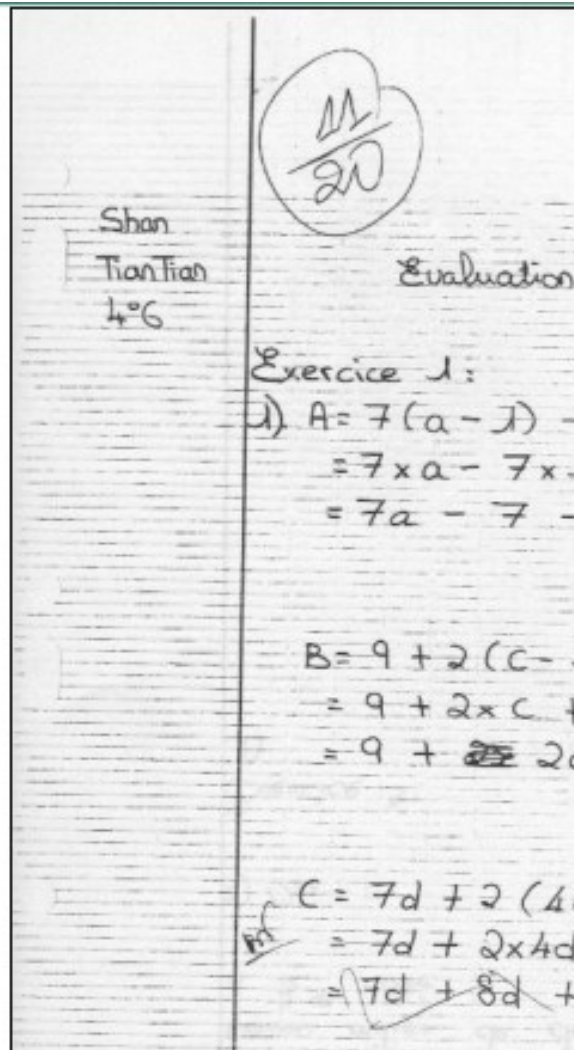 11/20
Shan
TianTian
4°6
Evaluation
Exercice 1:
1) A = 7(a - 1) -
= 7 x a - 7 x
= 7a - 7 -
B = 9 + 2 (c -
= 9 + 2 x c +
= 9 + 2c
C = 7d + 2 (4
= 7d + 2x4d
= 7d + 8d +